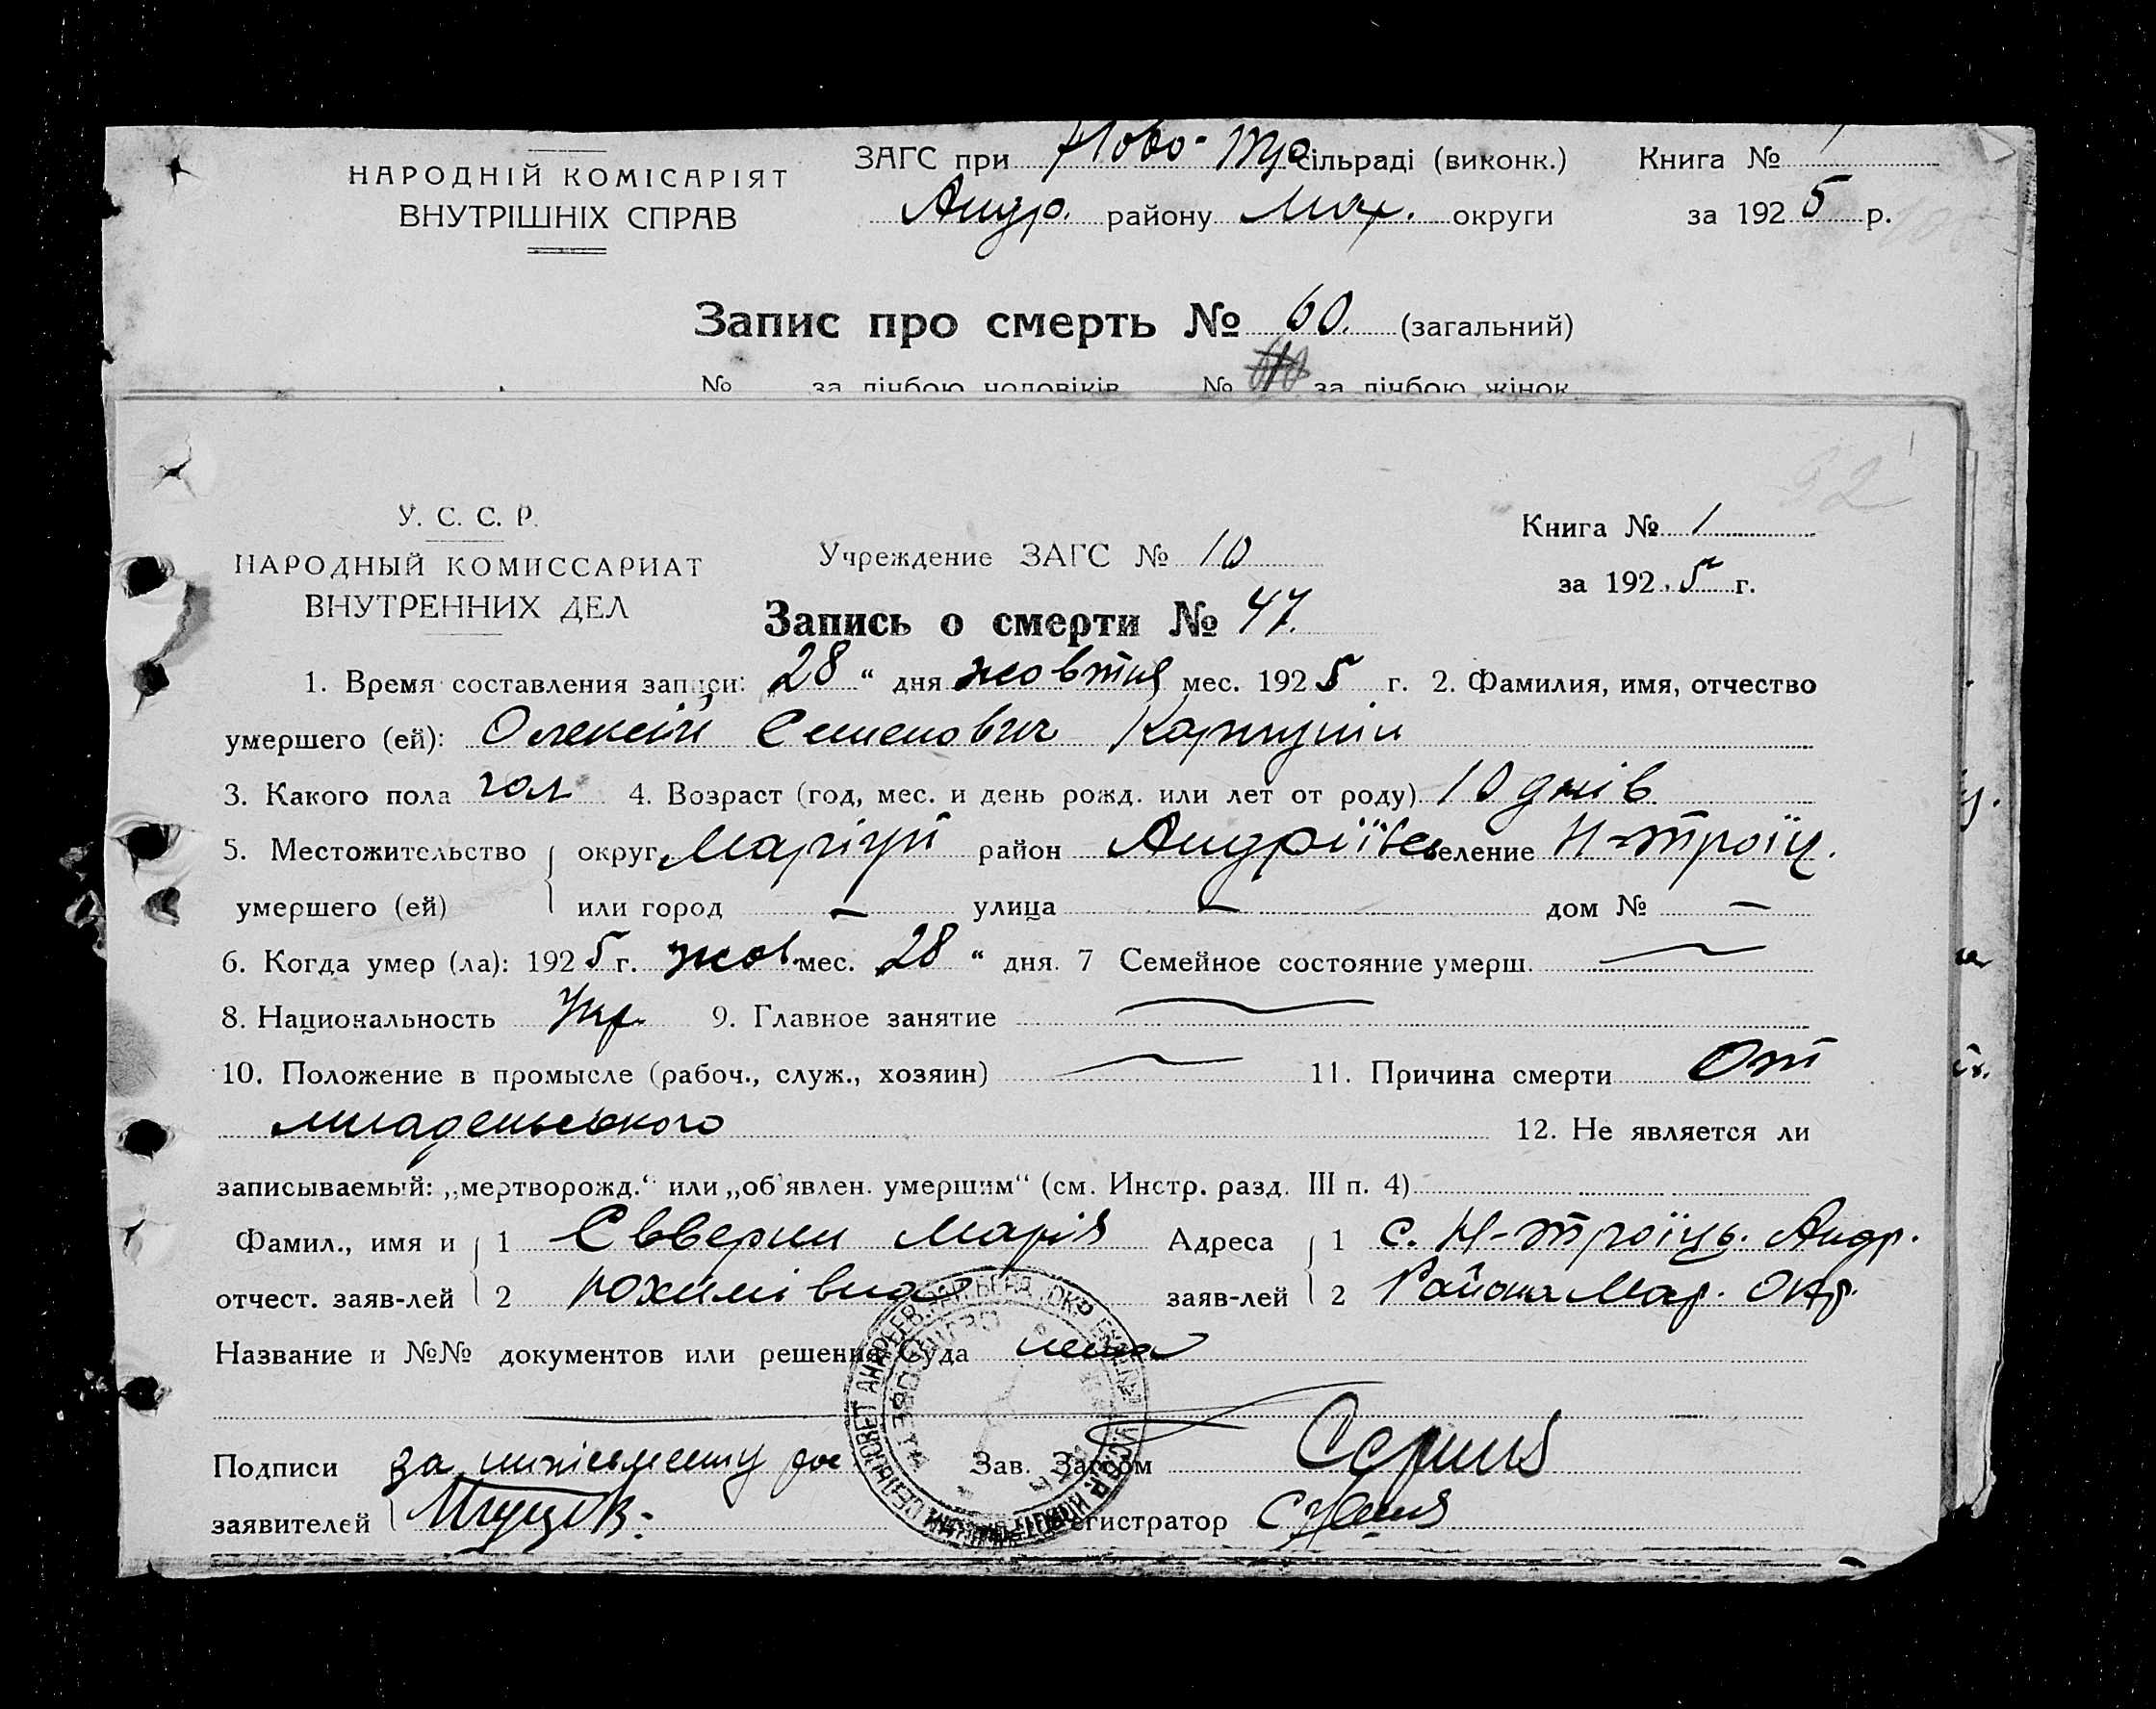 НАРОДНІЙ КОМІСАРІЯТ
ВНУТРІШНІХ СПРАВ
ЗАГС при Ново-Тро сільраді (виконк.) Книга №
Андр. району Мар. округи за 1925 р.
Запис про смерть № 60. (загальний)
№ за лічбою чоловіків № за лічбою жінок
У. С. С. Р.
НАРОДНЫЙ КОМИССАРИАТ
ВНУТРЕННИХ ДЕЛ
Учреждение ЗАГС № 10
Книга № 1
за 1925 г.
Запись о смерти № 47.
1. Время составления записи: „28“ дня жовтня мес. 1925 г. 2. Фамилия, имя, отчество
умершего (ей): Олексій Семенович
3. Какого пола чол 4. Возраст (год, мес. и день рожд. или лет от роду) 10 днів
5. Местожительство округ Маріуп район Андріїв селение Н-троїц.
умершего (ей) или город — улица — дом № —
6. Когда умер (ла): 1925 г. жов. мес. „28“ дня. 7 Семейное состояние умерш. —
8. Национальность Укр. 9. Главное занятие —
10. Положение в промысле (рабоч., служ., хозяин) — 11. Причина смерти От
младеньського 12. Не является ли
записываемый: „мертворожд.“ или „об'явлен. умершим“ (см. Инстр. разд. III п. 4)
Фамил., имя и 1 Марія Адреса 1 с. Н-троїць. Андр.
отчест. заяв-лей 2 заяв-лей 2 Района Мар. Окр.
Название и №№ документов или решение Суда нема
Подписи за Зав. Загсом
заявителей Регистратор